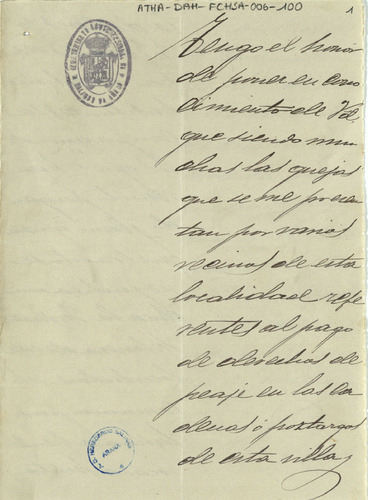 ATHA-DAH-FCHSA-006-100
1
Tengo el honor
de poner en cono
cimiento de Vd.
que siendo mu
chas las quejas
que se me presen
tan por varios
vecinos de esta
localidad refe
rentes al pago
de derechos de
peaje en las ca
denas o portazgos
de esta villa,